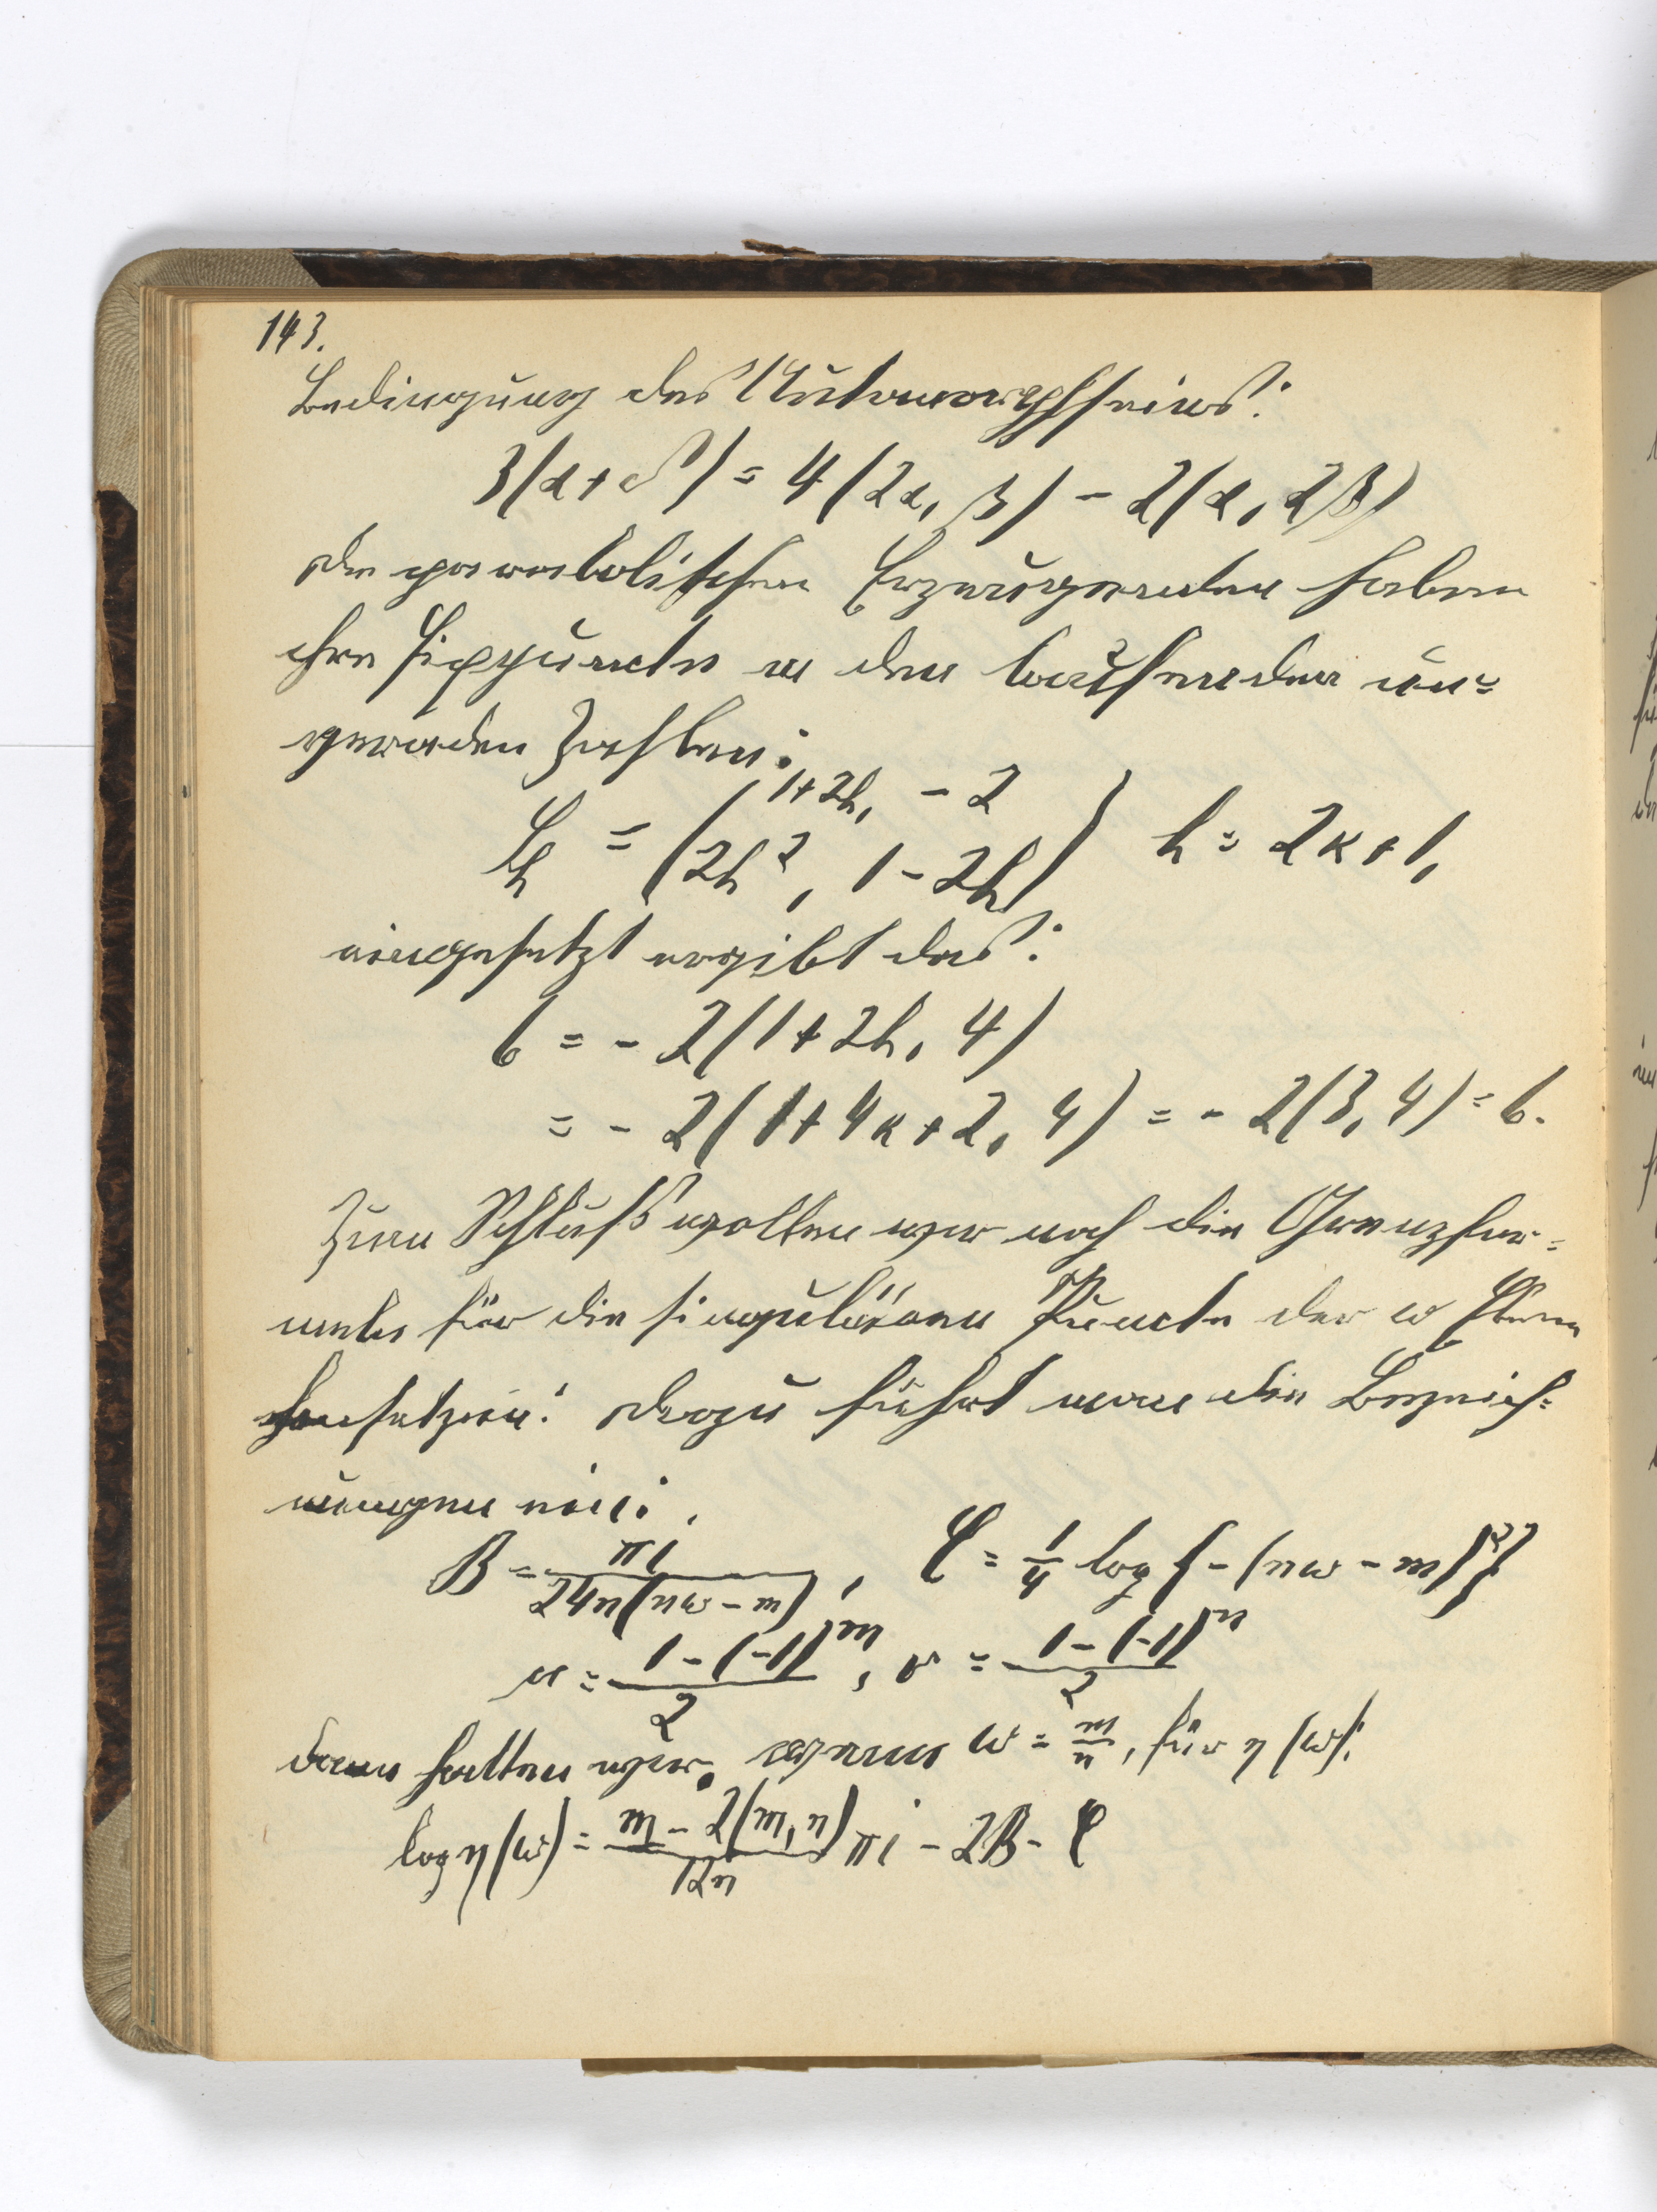 143.
Bedingung des Automorphseins:
3(α+δ) = 4(2α, β) - 2(α, 2β)
die parabolischen Erzeugenden haben
ihre Fixpuncte in den laufenden un=
geraden Zahlen:
= (1+2h, - 2
2h², 1-2h) h = 2κ+1,
eingesetzt ergibt das:
6 = - 2(1+2h, 4)
= - 2(1+4κ+2, 4) = - 2(3, 4) = 6.
Zum Schluß wollen wir noch die Grenzfor=
meln für die singulären Puncte der ω Ebene
hersetzen: dazu führt man die Bezeich=
nungen ein:
B = πi / 24n(nω-m), C = 1/4 log {-(nω-m)²}
u = 1-(-1)^m / 2, v = 1-(-1)^n / 2
dann hatten wir, wenn ω = m/n, für η(ω):
log η(ω) = m - 2(m, n) / 12n πi - 2B - C